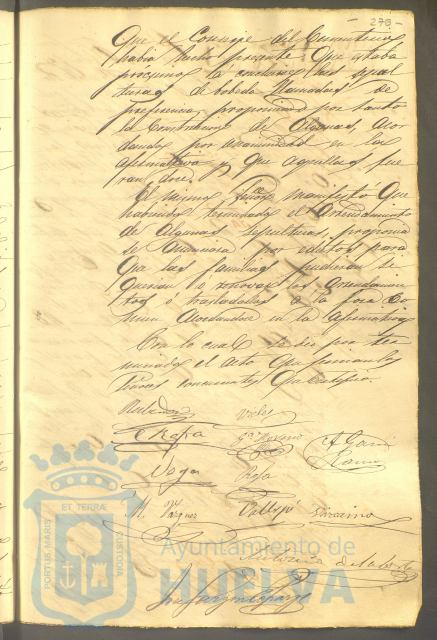 - 278 -
Que el Conserje del Cementerio
había hecho presente que estaba
proximo a concluirse las sepul
turas de bobeda llamadas de
preferencia, proponiendo por tanto
la Construcion de Algunas, Acor
dandose por unanimidad en la
afirmativa y que aquellas fue
ran doce.
El mismo Señor manifestó Que
habiendo terminado el Arrendamiento
de Algunas Sepulturas, proponia
se Anunciara por edictos para
Que las familias pudieran si
querian renovar los Arrendamien
tos ó trasladarlos a la fosa Co
mun Acordandose en la Afirmativa
Con lo cual se dio por ter
minado el acto que firman los
Señores concurrentes Que Certifico.
La Rosa
García
Ramos
Vega
Rosa
M. Vazquez
Vallejo
ET TERRÆ
PORTUS MARIS
CUSTODIA
Ayuntamiento de
HUELVA